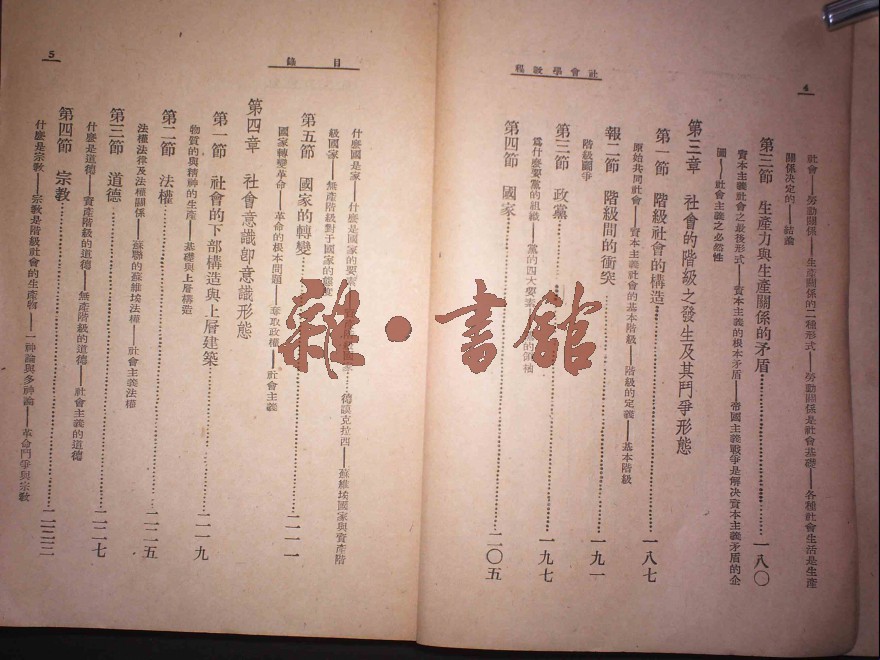 4
社會學教程
社會——勞動關係——生產關係的二種形式——勞動關係是社會基礎——各種社會生活是生產
關係决定的——結論
第三節 生產力與生產關係的矛盾…………一八〇
資本主義社會之最後形式——資本主義的根本矛盾——帝國主義戰爭是解决資本主義矛盾的企
圖——社會主義之必然性
第三章 社會的階級之發生及其鬥爭形態
第一節 階級社會的構造…………一八七
原始共同社會——資本主義社會的基本階級——階級的定義——基本階級
報二節 階級間的衝突…………一九一
階級鬭爭
第三節 政黨…………一九七
爲什麼要黨的組織——黨的四大要素 的領袖
第四節 國家…………二〇五
目錄
5
什麼國是家——什麼是國家的要素 德謨克拉西——蘇維埃國家與資產階
級國家——無產階級對于國家的態度
第五節 國家的轉變…………二一一
國家轉變革命——革命的根本問題——奪取政權——社會主義
第四章 社會意識卽意識形態
第一節 社會的下部構造與上層建築…………二一九
物質的與精神的生產——基礎與上層構造
第二節 法權…………二二五
法權法律及法權關係——蘇聯的蘇維埃法權——社會主義法權
第三節 道德…………二二七
什麼是道德——資產階級的道德——無產階級的道德——社會主義的道德
第四節 宗教…………二三三
什麼是宗教——宗教是階級社會的生產物——一神論與多神論——革命鬥爭與宗教
雜·書館